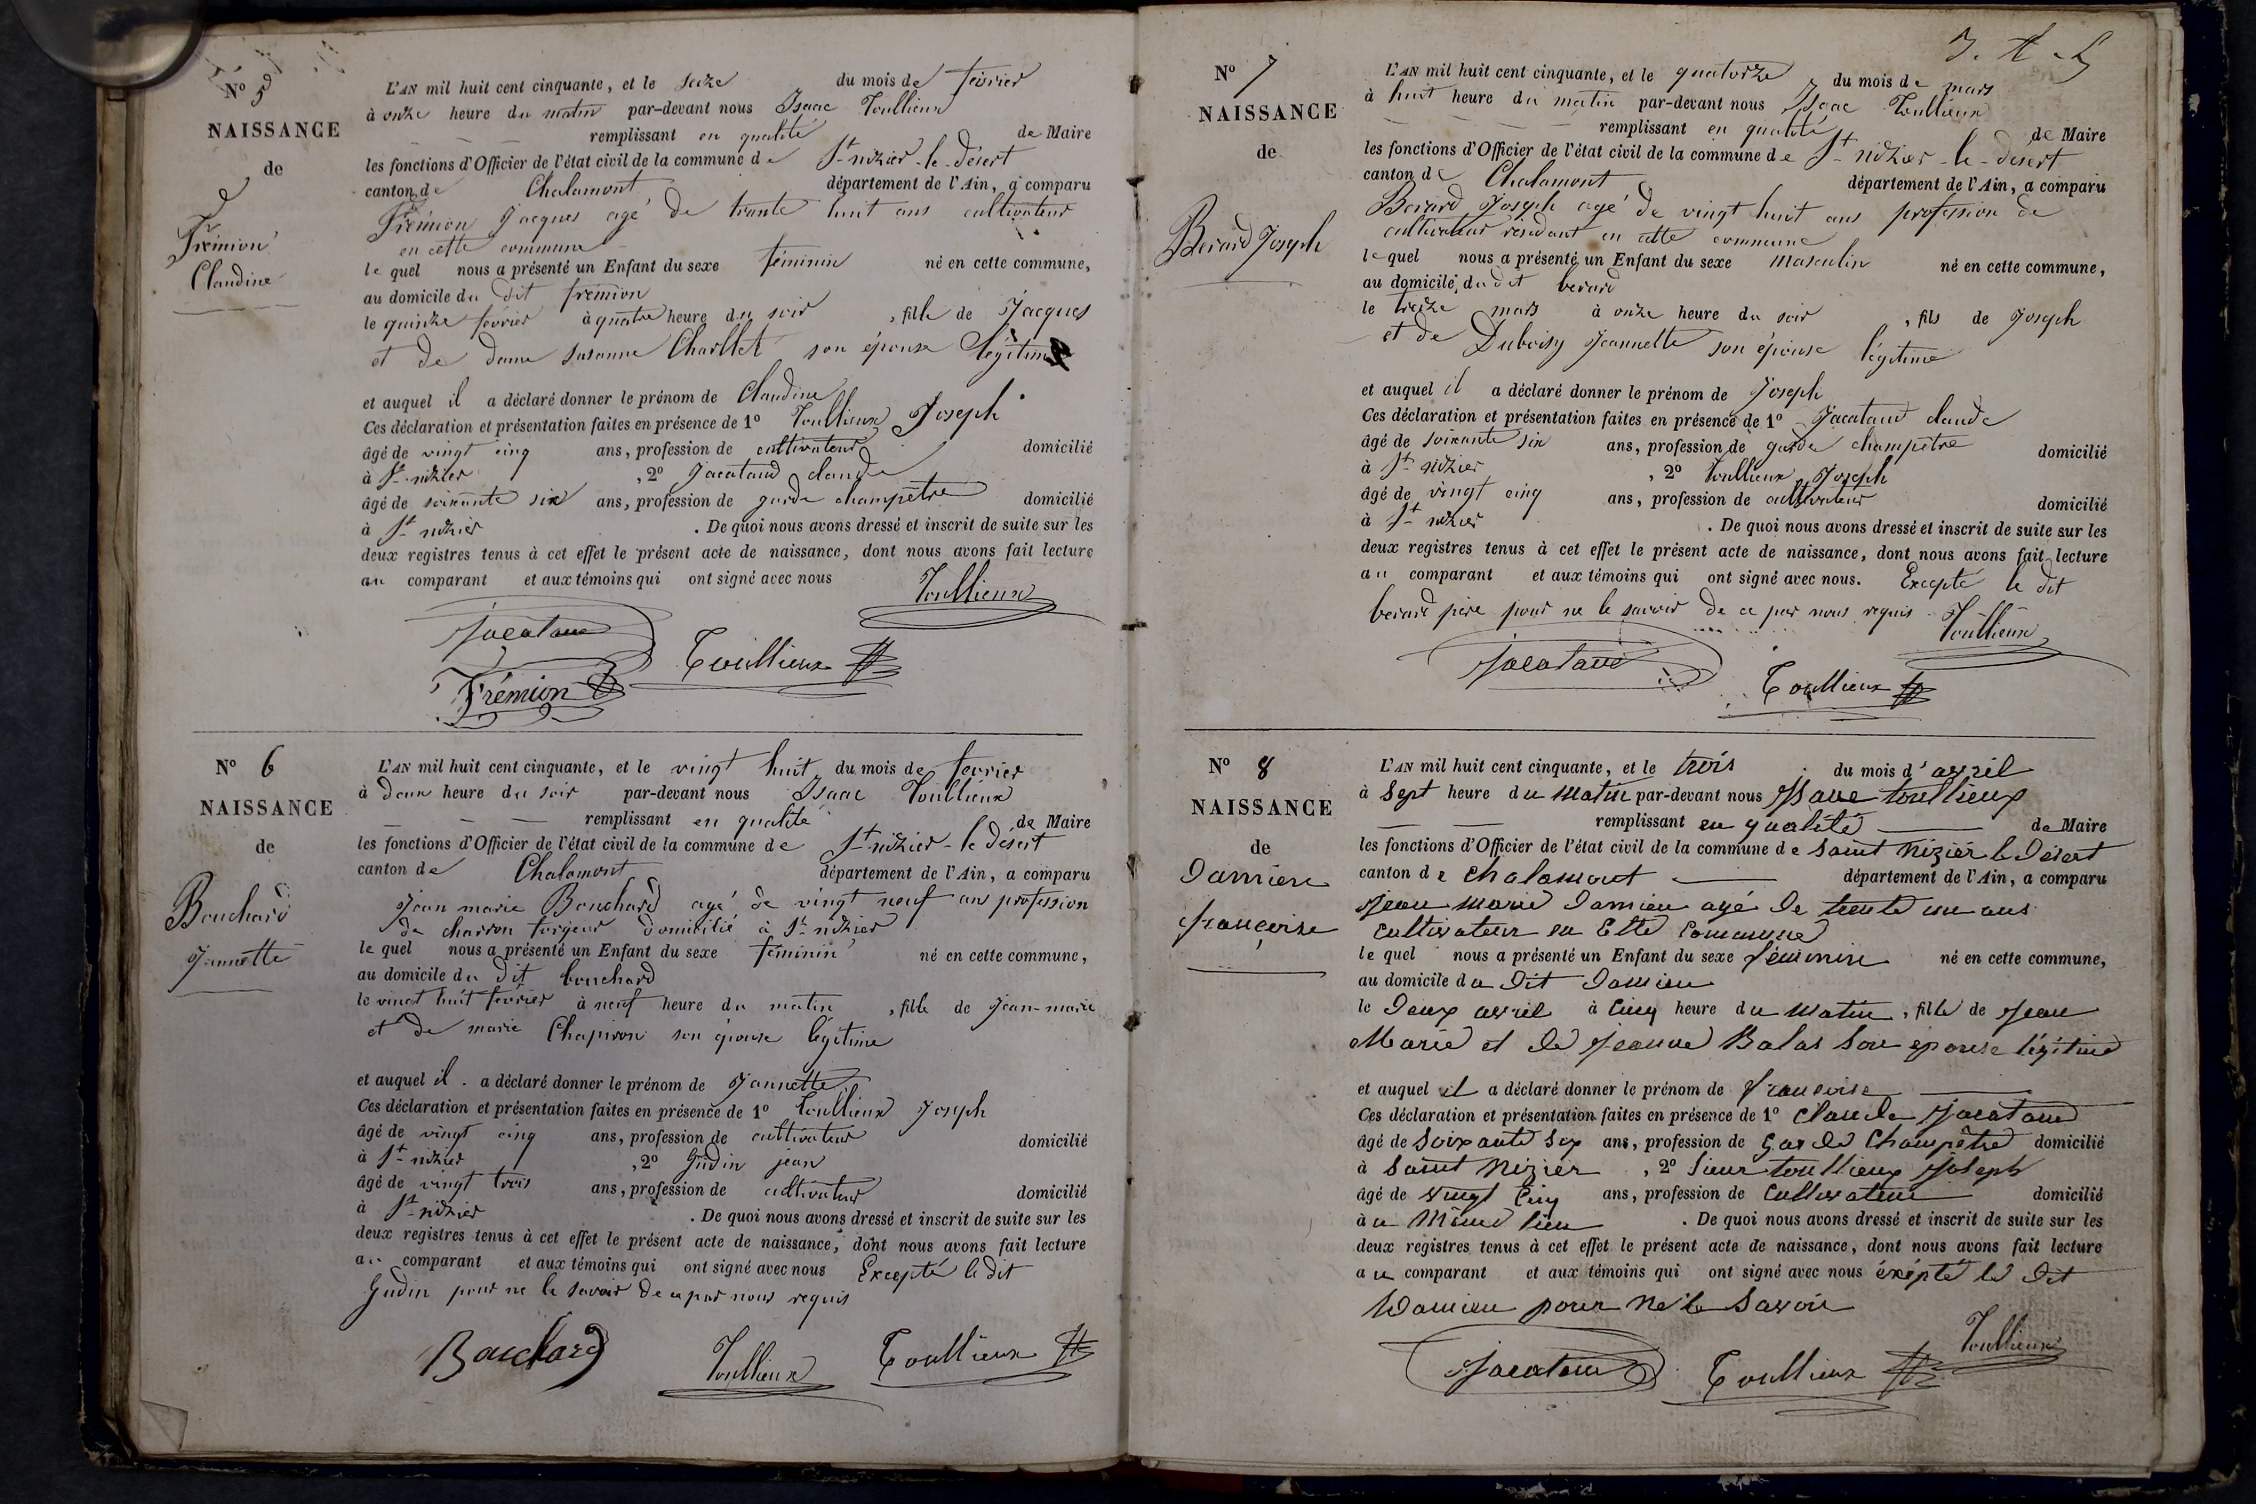 N° 5
NAISSANCE
de
Frémion
Claudine
L'AN mil huit cent cinquante, et le seize du mois de février
à onze heure du matin par-devant nous Isaac Toullieux
remplissant en qualité de Maire
les fonctions d'Officier de l'état civil de la commune de St-nizier-le-désert
canton de Chalamont département de l'Ain, a comparu
Frémion Jacques agé de trante huit ans cultivateur
en cette commune
lequel nous a présenté un Enfant du sexe féminin né en cette commune,
au domicile du dit frémion
le quinze février à quatre heure du soir, fille de Jacques
et de dame Susanne Charllet son épouse légitime
et auquel il a déclaré donner le prénom de Claudine
Ces déclaration et présentation faites en présence de 1° Toullieux Joseph
âgé de vingt cinq ans, profession de cultivateur domicilié
à St-nizier, 2° Jacataud claude
âgé de soixante six ans, profession de garde champêtre domicilié
à St-nizier. De quoi nous avons dressé et inscrit de suite sur les
deux registres tenus à cet effet le présent acte de naissance, dont nous avons fait lecture
au comparant et aux témoins qui ont signé avec nous
Toullieux
Jacataud
Toullieux
Frémion
N° 6
NAISSANCE
de
Bouchard
Jannette
L'AN mil huit cent cinquante, et le vingt huit du mois de fevrier
à deux heure du soir par-devant nous Isaac Toullieux
remplissant en qualité de Maire
les fonctions d'Officier de l'état civil de la commune de St-nizier-le désert
canton de Chalamont département de l'Ain, a comparu
Jean marie Bouchard agé de vingt neuf ans profession
de charron forgeur domicilié à St-nizier
lequel nous a présenté un Enfant du sexe féminin né en cette commune,
au domicile du dit bouchard
le vingt huit février à neuf heure du matin, fille de Jean-marie
et de marie Chapiron son épouse légitime
et auquel il a déclaré donner le prénom de Jannette
Ces déclaration et présentation faites en présence de 1° Toullieux Joseph
âgé de vingt cinq ans, profession de cultivateur domicilié
à St-nizier, 2° Gudin jean
âgé de vingt trois ans, profession de cultivateur domicilié
à St-nizier. De quoi nous avons dressé et inscrit de suite sur les
deux registres tenus à cet effet le présent acte de naissance, dont nous avons fait lecture
au comparant et aux témoins qui ont signé avec nous Excepté le dit
Gudin pour ne le savoir de ce par nous requis
Bouchard
Toullieux
Toullieux
N° 7
NAISSANCE
de
Berard Joseph
L'AN mil huit cent cinquante, et le quatorze du mois de mars
à huit heure du matin par-devant nous Isaac Toullieux
remplissant en qualité de Maire
les fonctions d'Officier de l'état civil de la commune de St-nizier-le-desert
canton de Chalamont département de l'Ain, a comparu
Berard Joseph agé de vingt huit ans profession de
cultivateur résidant en cette commune
lequel nous a présenté un Enfant du sexe masculin né en cette commune,
au domicile du dit berard
le treize mars à onze heure du soir, fils de Joseph
et de Duboisy Jeannette son épouse légitime
et auquel il a déclaré donner le prénom de Joseph
Ces déclaration et présentation faites en présence de 1° Jacataud claude
âgé de soixante six ans, profession de garde champêtre domicilié
à St-nizier, 2° Toullieux Joseph
âgé de vingt cinq ans, profession de cultivateur domicilié
à St-nizier. De quoi nous avons dressé et inscrit de suite sur les
deux registres tenus à cet effet le présent acte de naissance, dont nous avons fait lecture
au comparant et aux témoins qui ont signé avec nous. Excepté le dit
berard père pour ne le savoir de ce par nous requis
Toullieux
Jacataud
Toullieux
N° 8
NAISSANCE
de
Damien
françoise
L'AN mil huit cent cinquante, et le trois du mois d'avril
à Sept heure du matin par-devant nous Isaac toullieux
remplissant en qualité de Maire
les fonctions d'Officier de l'état civil de la commune de Saint Nizier le Désert
canton de chalamont département de l'Ain, a comparu
Jean marie Damien agé de trente un ans
cultivateur en Cette Commune
lequel nous a présenté un Enfant du sexe féminin né en cette commune,
au domicile du dit Damien
le Deux avril à Cinq heure du matin, fille de Jean
Marie et de Jeanne Balas Son épouse légitime
et auquel il a déclaré donner le prénom de francoise
Ces déclaration et présentation faites en présence de 1° Claude Jacataud
âgé de Soixante Six ans, profession de Garde Champêtre domicilié
à Saint Nizier, 2° Sieur toullieux Joseph
âgé de vingt Cinq ans, profession de Cultivateur domicilié
au Même lieu. De quoi nous avons dressé et inscrit de suite sur les
deux registres tenus à cet effet le présent acte de naissance, dont nous avons fait lecture
au comparant et aux témoins qui ont signé avec nous éxépté le Dit
Damien pour Ne le Savoir
Toullieux
Jacataud
Toullieux